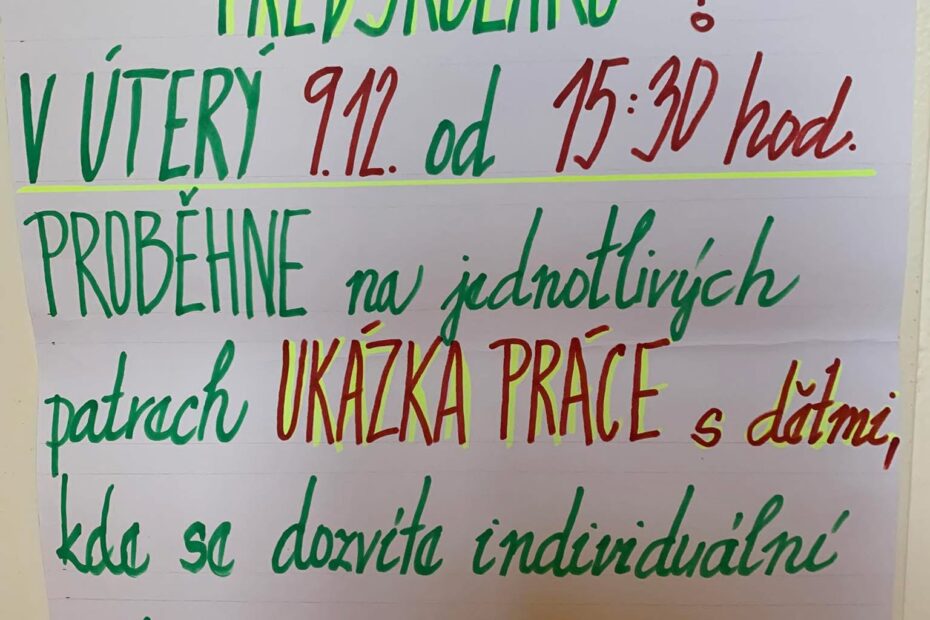 PŘEDŠKOLÁKŮ !
V ÚTERÝ 9.12. od 15:30 hod.
PROBĚHNE na jednotlivých
patrech UKÁZKA PRÁCE s dětmi,
kde se dozvíte individuální